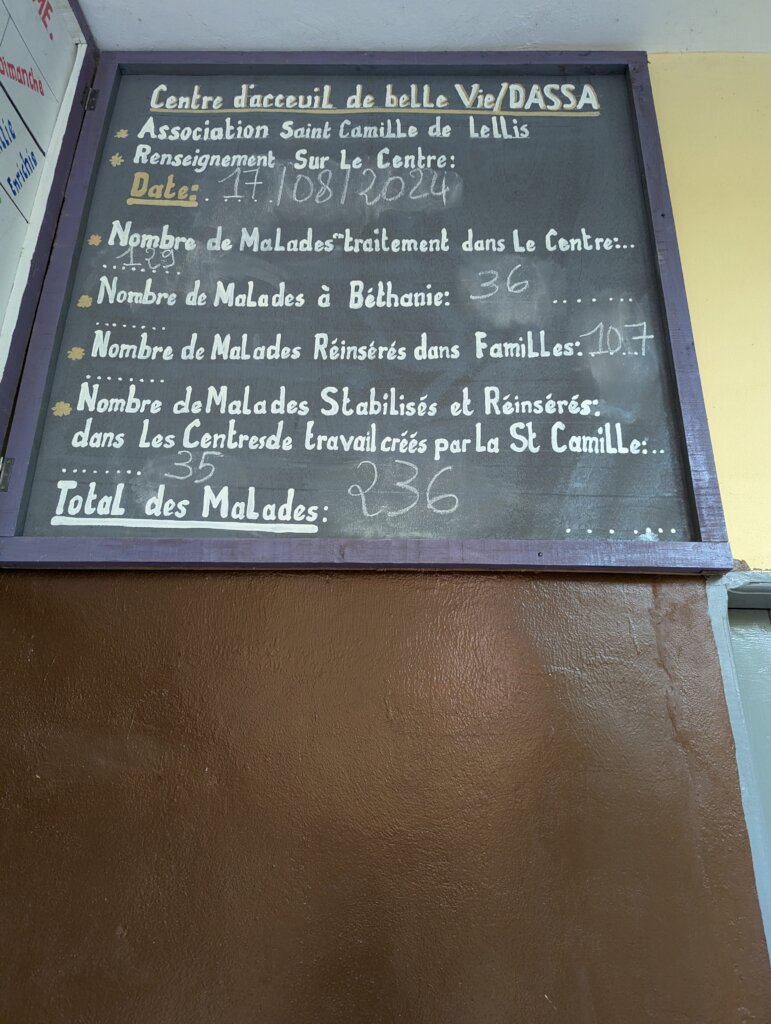 ME.
Dimanche
Enrichie
Centre d'acceuil de belle Vie/DASSA
* Association Saint Camille de Lellis
* Renseignement Sur Le Centre:
Date: 17/08/2024
* Nombre de Malades en traitement dans Le Centre:..
129
* Nombre de Malades à Béthanie: 36 .......
.......
* Nombre de Malades Réinsérés dans Familles: 107
........
* Nombre de Malades Stabilisés et Réinsérés:
dans les Centres de travail créés par La St Camille:..
........ 35
Total des Malades: 236
......